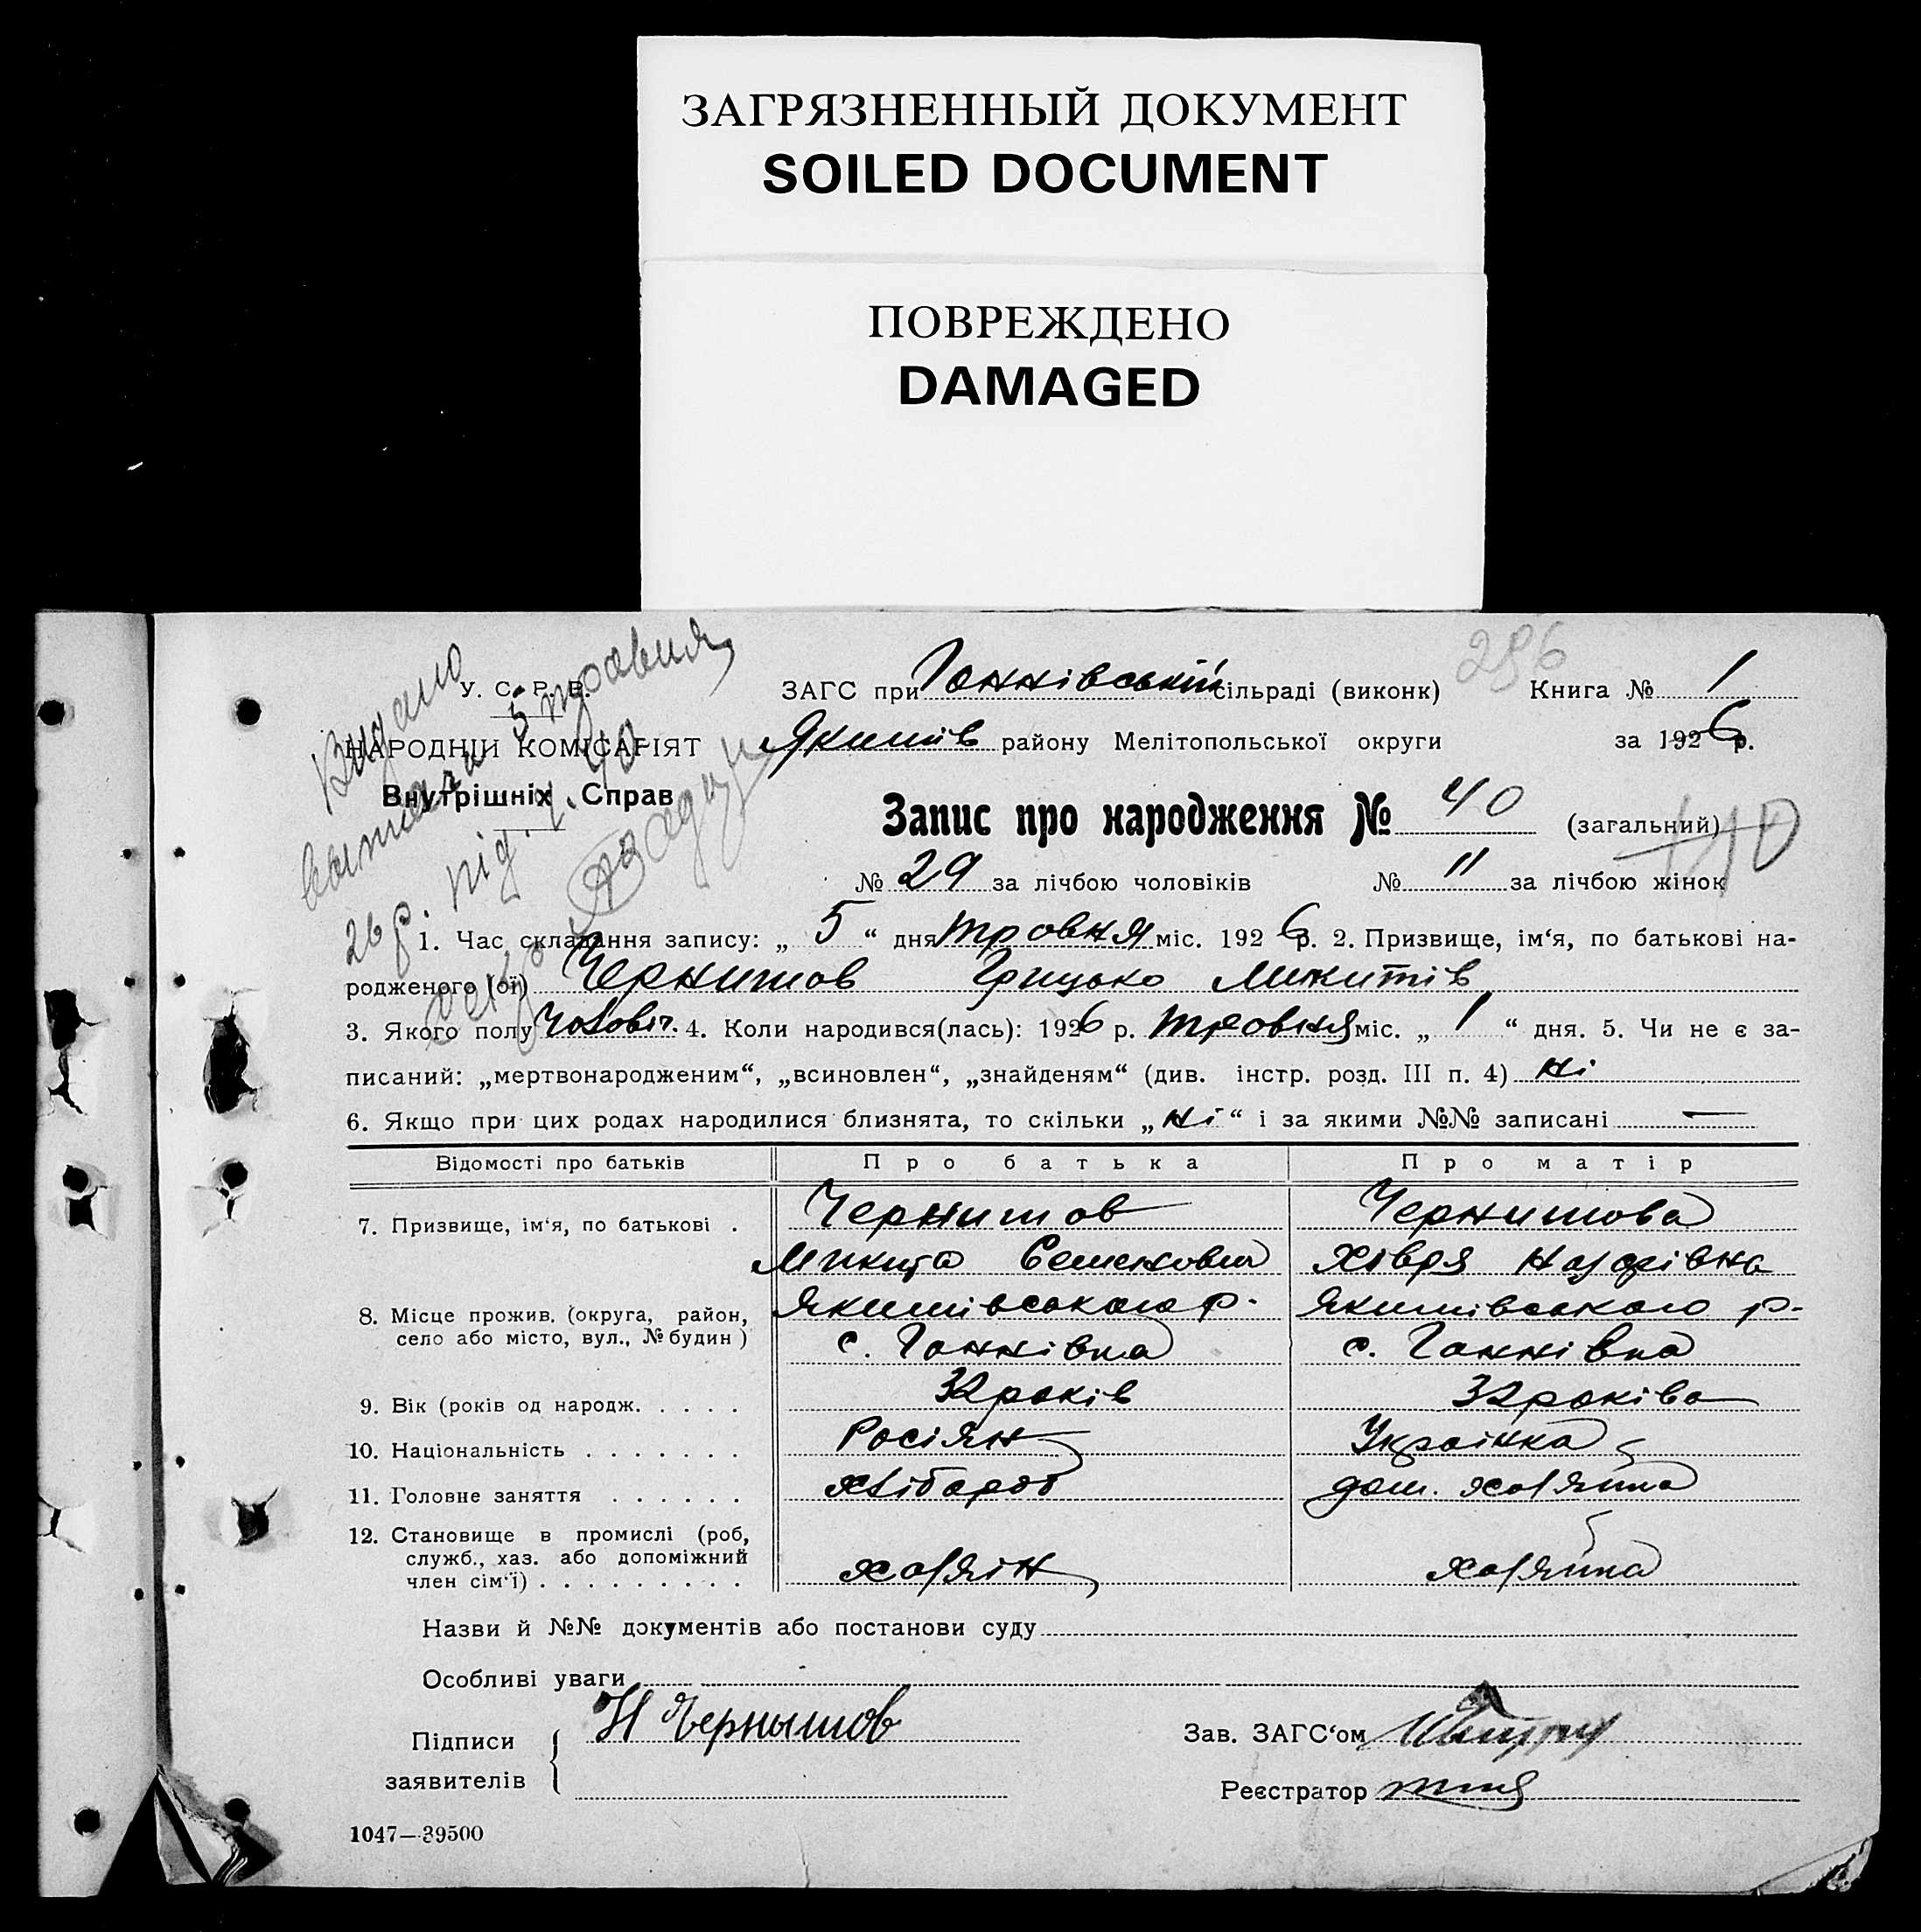 ЗАГРЯЗНЕННЫЙ ДОКУМЕНТ
SOILED DOCUMENT
ПОВРЕЖДЕНО
DAMAGED
286
У. С. Р. Р.
НАРОДНІЙ КОМІСАРІЯТ
Внутрішніх Справ
Видано
5 травня
26 р. під. ч. 40
ЗАГС при Ганнівській сільраді (виконк) Книга № 1
Якимів району Мелітопольської округи за 1926 р.
Запис про народження № 40 (загальний) 10
№ 29 за лічбою чоловіків № 11 за лічбою жінок
1. Час складання запису: „ 5 “ дня травня міс. 1926 р. 2. Призвище, ім‘я, по батькові на-
родженого (ої) Чернишов Грицько Микитів
3. Якого полу Чоловіч. 4. Коли народився(лась): 1926 р. травня міс. „ 1 “ дня. 5. Чи не є за-
писаний: „мертвонародженим“, „всиновлен“, „знайденям“ (див. інстр. розд. III п. 4) ні
6. Якщо при цих родах народилися близнята, то скільки „ ні “ і за якими №№ записані —
Відомості про батьків Про батька Про матір
7. Призвище, ім‘я, по батькові . Чернишов Чернишова
Микита Семенович Хівря Назарівна
8. Місце прожив. (округа, район, Якимівського р. Якимівського р.
село або місто, вул., № будин) с. Ганнівка с. Ганнівка
9. Вік (років од народж. . . . . 32 років 32 років
10. Національність . . . . . . . Росіян Українка
11. Головне заняття . . . . . . хлібароб дом. хазяйка
12. Становище в промислі (роб,
служб., хаз. або допоміжний
член сім‘ї) . . . . . . . . . хазяїн хазяйка
Назви й №№ документів або постанови суду
Особливі уваги
Підписи Н Чернышов Зав. ЗАГС‘ом
заявителів Реєстратор
1047—39500